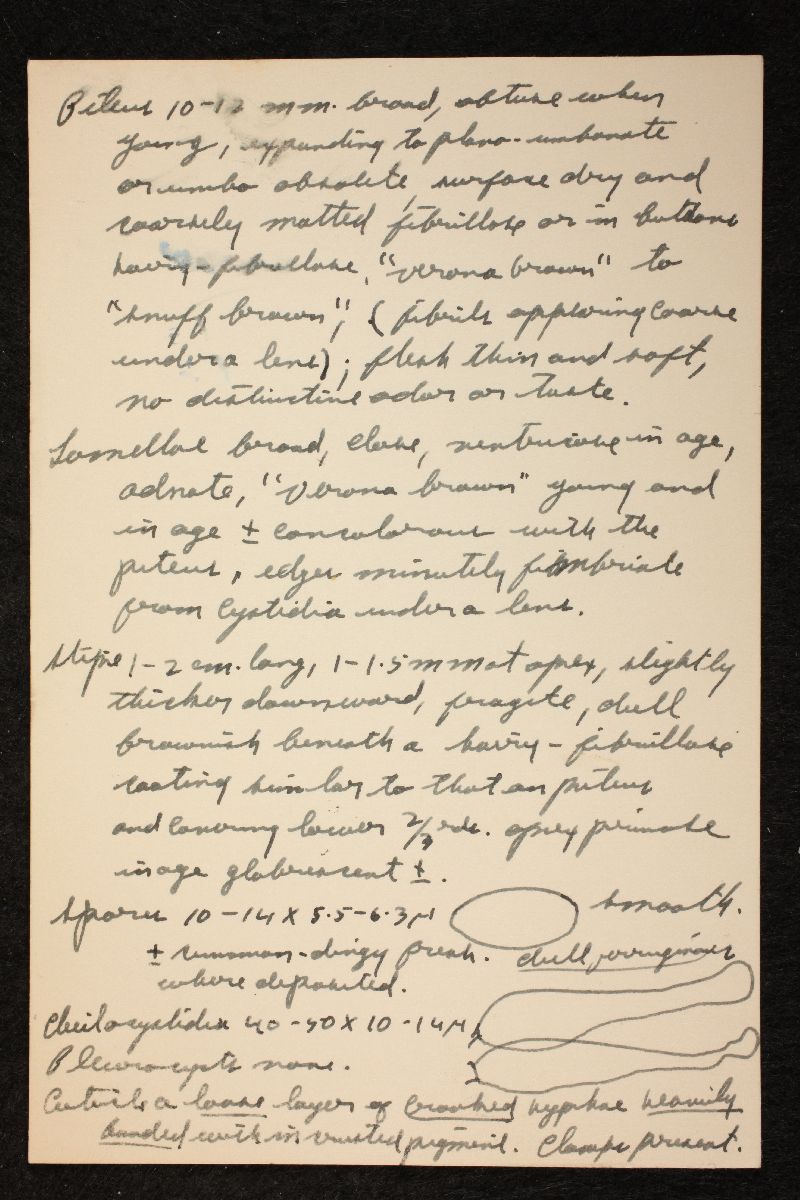 Pileus 10-12 mm. broad, obtuse when
young, expanding to plano-umbonate
or umbo obsolete, surface dry and
coarsely matted fibrillose or in buttons
hairy-fibrillose, "verona brown" to
"snuff brown", (fibrils appearing coarse
under a lens); flesh thin and soft,
no distinctive odor or taste.
Lamellae broad, close, ventricose in age,
adnate, "verona brown" young and
in age ± concolorous with the
pileus, edges minutely fimbriate
from cystidia under a lens.
Stipe 1-2 cm. long, 1-1.5 mm at apex, slightly
thicker downward, fragile, dull
brownish beneath a hairy-fibrillose
coating similar to that on pileus
and covering lower 2/3rds. apex pruinose
in age glabrescent ±.
Spores 10-14 X 5.5-6.3 μ smooth.
± cinnamon-dingy fresh. dull ferruginous
where deposited.
Cheilocystidia 40-50 X 10-14 μ,
Pleurocysts none.
Cuticle a loose layer of crooked hyphae heavily
banded with incrusted pigment. Clamps present.